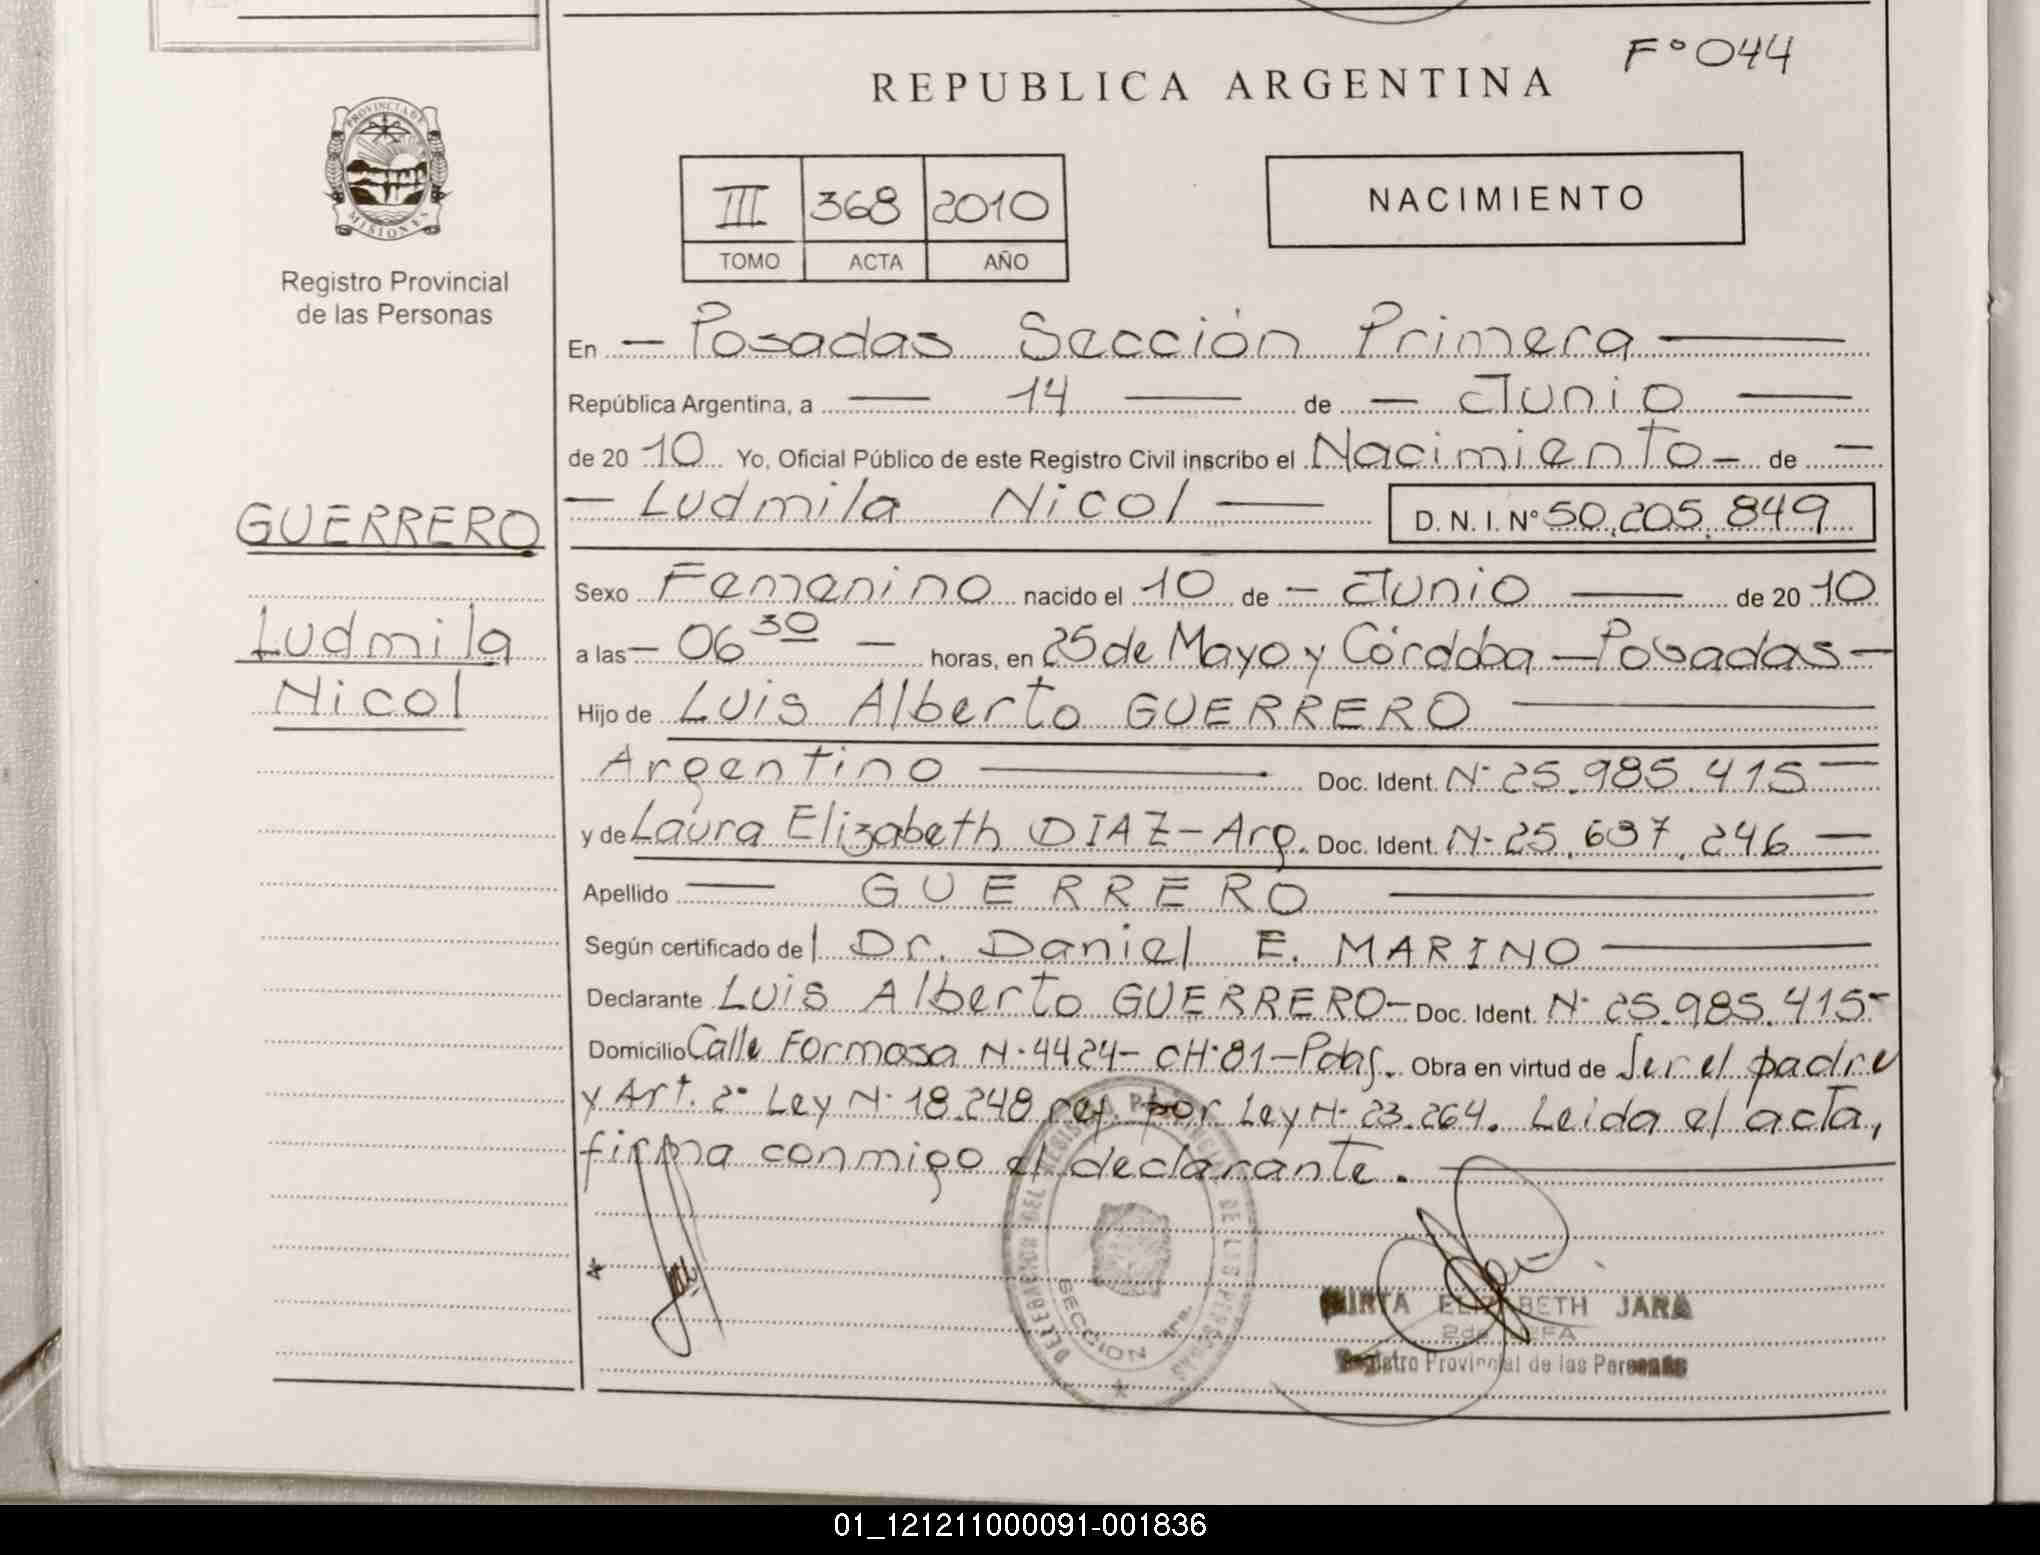 F° 044
REPUBLICA ARGENTINA
PROVINCIA DE
MISIONES
Registro Provincial
de las Personas
III 368 2010
TOMO ACTA AÑO
NACIMIENTO
En — Posadas Sección Primera —
República Argentina, a — 14 — de — Junio —
de 20 10 Yo, Oficial Público de este Registro Civil inscribo el Nacimiento — de —
— Ludmila Nicol — D. N. I. N° 50.205.849
GUERRERO
Ludmila
Nicol
Sexo Femenino nacido el 10 de — Junio — de 20 10
a las — 06 30 — horas, en 25 de Mayo y Córdoba — Posadas —
Hijo de Luis Alberto GUERRERO —
Argentino — Doc. Ident. N· 25.985.415 —
y de Laura Elizabeth DIAZ - Arg. Doc. Ident. N· 25.637.246 —
Apellido — GUERRERO —
Según certificado del Dr. Daniel E. MARINO —
Declarante Luis Alberto GUERRERO — Doc. Ident. N· 25.985.415 -
Domicilio Calle Formosa N· 4424 - CH· 81 - Pdas. Obra en virtud de Ser el padre
y Art. 2° Ley N· 18.248 ref. por Ley N· 23.264. Leida el acta,
firma conmigo el declarante. —
DELEGACION DEL REGISTRO PROVINCIAL DE LAS PERSONAS
SECCION 1ra.
MIRTA ELIZABETH JARA
2da JEFA
Registro Provincial de las Personas
01_121211000091-001836